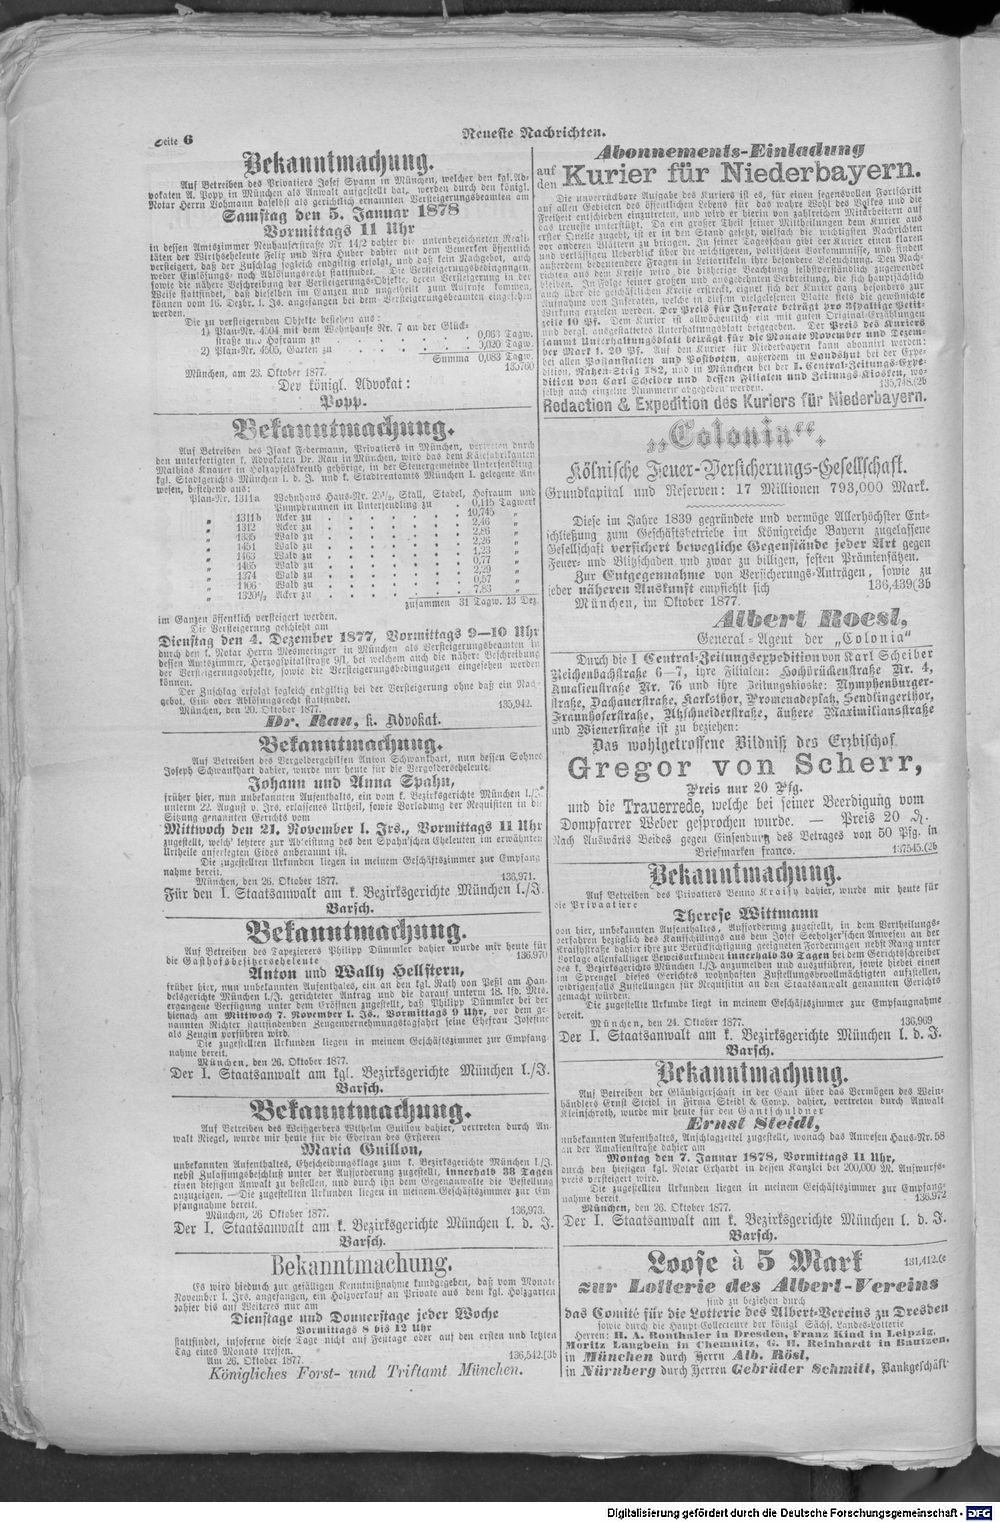 Seite 6
Neueste Nachrichten.
Bekanntmachung.
Auf Betreiben des Privatiers Josef Spann in München, welcher den kgl. Ad-
vokaten A. Popp in München als Anwalt aufgestellt hat, werden durch den königl.
Notar Herrn Lohmann daselbst als gerichtlich ernannten Versteigerungsbeamten am
Samstag den 5. Januar 1878
Vormittags 11 Uhr
in dessen Amtszimmer Neuhauserstraße Nr. 14/2 dahier die untenbezeichneten Reali-
täten der Wirthseheleute Felix und Afra Huber dahier mit dem Bemerken öffentlich
versteigert, daß der Zuschlag sogleich endgiltig erfolgt, und daß kein Nachgebot, auch
weder Einlösungs- noch Ablösungsrecht stattfindet. Die Versteigerungsbedingungen,
sowie die nähere Beschreibung der Versteigerungs-Objekte, deren Versteigerung in der
Weise stattfindet, daß dieselben im Ganzen und ungetheilt zum Aufrufe kommen,
können vom 15. Dezbr. l. Js. angefangen bei dem Versteigerungsbeamten eingesehen
werden.
Die zu versteigernden Objekte bestehen aus:
1) Plan-Nr. 4504 mit dem Wohnhause Nr. 7 an der Glück-
straße und Hofraum zu . . . . . . . 0,063 Tagw.
2) Plan-Nr. 4505, Garten zu . . . . . . 0,020 Tagw.
Summa 0,083 Tagw.
München, am 23. Oktober 1877. 135760
Der königl. Advokat:
Popp.
Bekanntmachung.
Auf Betreiben des Isaak Federmann, Privatiers in München, vertreten durch
den unterfertigten k. Advokaten Dr. Rau in München, wird das dem Käsefabrikanten
Mathias Knauer in Holzapfelskreuth gehörige, in der Steuergemeinde Untersendling
kgl. Stadtgerichts München l. d. J. und k. Stadtrentamts München I. gelegene An-
wesen, bestehend aus:
Plan-Nr. 1311a Wohnhaus Haus-Nr. 25½, Stall, Stadel, Hofraum und
Pumpbrunnen in Untersendling zu . 0,115 Tagwerk
„ 1311b Acker zu . . . . . . 10,745 „
„ 1312 Acker zu . . . . . . 2,46 „
„ 1335 Wald zu . . . . . . 2,86 „
„ 1451 Wald zu . . . . . . 2,26 „
„ 1463 Wald zu . . . . . . 1,23 „
„ 1465 Wald zu . . . . . . 0,77 „
„ 1374 Wald zu . . . . . . 2,29 „
„ 1106 Wald zu . . . . . . 0,57 „
„ 1320½ Acker zu . . . . . . 7,83 „
zusammen 31 Tagw. 13 Dez.
im Ganzen öffentlich versteigert werden.
Die Versteigerung geschieht am
Dienstag den 4. Dezember 1877, Vormittags 9—10 Uhr
durch den k. Notar Herrn Mesmeringer in München als Versteigerungsbeamten in
dessen Amtszimmer, Herzogspitalstraße 9/1, bei welchem auch die nähere Beschreibung
der Versteigerungsobjekte, sowie die Versteigerungsbedingungen eingesehen werden
können.
Der Zuschlag erfolgt sogleich endgiltig bei der Versteigerung ohne daß ein Nach-
gebot, Ein- oder Ablösungsrecht stattfindet.
München, den 20. Oktober 1877. 135,942.
Dr. Rau, k. Advokat.
Bekanntmachung.
Auf Betreiben des Vergoldergehilfen Anton Schwankhart, nun dessen Sohnes
Joseph Schwankhart dahier, wurde mir heute für die Vergolderseheleute
Johann und Anna Spahn,
früher hier, nun unbekannten Aufenthalts, ein vom k. Bezirksgerichte München l./J.
unterm 22. August v. Jrs. erlassenes Urtheil, sowie Vorladung der Requisiten in die
Sitzung genannten Gerichts vom
Mittwoch den 21. November l. Jrs., Vormittags 11 Uhr
zugestellt, welch' letztere zur Ableistung des den Spahn'schen Eheleuten im erwähnten
Urtheile auferlegten Eides anberaumt ist.
Die zugestellten Urkunden liegen in meinem Geschäftszimmer zur Empfang
nahme bereit.
München, den 26. Oktober 1877. 136,971.
Für den I. Staatsanwalt am k. Bezirksgerichte München l./J.
Barsch.
Bekanntmachung.
Auf Betreiben des Tapezierers Philipp Dümmler dahier wurde mir heute für
die Gasthofsbesitzerseheleute 136,970
Anton und Wally Hellstern,
früher hier, nun unbekannten Aufenthaltes, ein an den kgl. Rath von Peßl am Han-
delsgerichte München l./J. gerichteter Antrag und die darauf unterm 18. lfd. Mts.
ergangene Verfügung unter dem Eröffnen zugestellt, daß Philipp Dümmler bei der
hienach am Mittwoch 7. November l. Js., Vormittags 9 Uhr, vor dem ge-
nannten Richter stattfindenden Zeugenvernehmungstagsfahrt seine Ehefrau Josefine
als Zeugin vorführen wird.
Die zugestellten Urkunden liegen in meinem Geschäftszimmer zur Empfang
nahme bereit.
München, den 26. Oktober 1877.
Der I. Staatsanwalt am kgl. Bezirksgerichte München l./J.
Barsch.
Bekanntmachung.
Auf Betreiben des Weißgerbers Wilhelm Guillon dahier, vertreten durch An-
walt Riezel, wurde mir heute für die Ehefrau des Ersteren
Maria Guillon,
unbekannten Aufenthalts, Ehescheidungsklage zum k. Bezirksgerichte München l./J.
nebst Zulassungsbeschluß unter der Aufforderung zugestellt, innerhalb 38 Tagen
einen diesigen Anwalt zu bestellen, und durch ihn dem Gegenanwalte die Bestellung
anzuzeigen. — Die zugestellten Urkunden liegen in meinem Geschäftszimmer zur Em
pfangnahme bereit.
München, 26 Oktober 1877. 136,973.
Der I. Staatsanwalt am k. Bezirksgerichte München l. d. J.
Barsch.
Bekanntmachung.
Es wird hiedurch zur gefälligen Kenntnißnahme kundgegeben, daß vom Monate
November l. Jrs. angefangen, ein Holzverkauf an Private aus dem kgl. Holzgarten
dahier bis auf Weiteres nur am
Dienstage und Donnerstage jeder Woche
Vormittags 8 bis 12 Uhr
stattfindet, insoferne diese Tage nicht auf Festtage oder auf den ersten und letzten
Tag eines Monats treffen. 136,542.(3b
Am 26. Oktober 1877.
Königliches Forst- und Triftamt München.
Abonnements-Einladung
auf den Kurier für Niederbayern.
Die unverrückbare Aufgabe des Kuriers ist es, für einen segensvollen Fortschritt
auf allen Gebieten des öffentlichen Lebens für das wahre Wohl des Volkes und die
Freiheit entschieden einzutreten, und wird er hierin von zahlreichen Mitarbeitern auf
das treueste unterstützt. Da ein großer Theil seiner Mittheilungen dem Kurier aus
erster Quelle zugeht, ist er in den Stand gesetzt, vielfach die wichtigsten Nachrichten
vor anderen Blättern zu bringen. In seiner Tagesschau gibt der Kurier einen klaren
und verlässigen Ueberblick über die wichtigeren, politischen Vorkommnisse, und finden
außerdem bedeutendere Fragen in Leitartikeln ihre besondere Beleuchtung. Den Nach-
richten aus dem Kreise wird die bisherige Beachtung selbstverständlich zugewendet
bleiben. In Folge seiner großen und ausgedehnten Verbreitung, die sich hauptsächlich
auch über die geschäftlichen Kreise erstreckt, eignet sich der Kurier ganz besonders zur
Aufnahme von Inseraten, welche in diesem vielgelesenen Blatte stets die gewünschte
Wirkung erzielen werden. Der Preis für Inserate beträgt pro 3spaltige Petit-
zeile 10 Pf. Dem Kurier ist allwöchentlich ein mit guten Original-Erzählungen
und dergl. ausgestattetes Unterhaltungsblatt beigegeben. Der Preis des Kuriers
sammt Unterhaltungsblatt beträgt für die Monate November und Dezem-
ber Mark 1. 20 Pf. Auf den Kurier für Niederbayern kann abonnirt werden:
bei allen Postanstalten und Postboten, außerdem in Landshut bei der Expe-
dition, Rosen-Steig 182, und in München bei der I. Central-Zeitungs-Expe-
dition von Carl Scheiber und dessen Filialen und Zeitungs-Kiosken, wo-
selbst auch einzelne Nummern abgegeben werden. 135,748.(2b
Redaction & Expedition des Kuriers für Niederbayern.
„Colonia“,
Kölnische Feuer-Versicherungs-Gesellschaft.
Grundkapital und Reserven: 17 Millionen 793,000 Mark.
Diese im Jahre 1839 gegründete und vermöge Allerhöchster Ent-
schließung zum Geschäftsbetriebe im Königreiche Bayern zugelassene
Gesellschaft versichert bewegliche Gegenstände jeder Art gegen
Feuer- und Blitzschaden und zwar zu billigen, festen Prämiensätzen.
Zur Entgegennahme von Versicherungs-Anträgen, sowie zu
jeder näheren Auskunft empfiehlt sich 136,439(3b
München, im Oktober 1877.
Albert Roesl,
General-Agent der „Colonia“
Durch die I Central-Zeitungsexpedition von Karl Scheiber
Reichenbachstraße 6—7, ihre Filialen: Hochbrückenstraße Nr. 4,
Amalienstraße Nr. 76 und ihre Zeitungskioske: Nymphenburger-
straße, Dachauerstraße, Karlsthor, Promenadeplatz, Sendlingerthor,
Fraunhoferstraße, Utzschneiderstraße, äußere Maximiliansstraße
und Wienerstraße ist zu beziehen:
Das wohlgetroffene Bildniß des Erzbischof
Gregor von Scherr,
Preis nur 20 Pfg.
und die Trauerrede, welche bei seiner Beerdigung vom
Dompfarrer Weber gesprochen wurde. — Preis 20 ₰.
Nach Auswärts Beides gegen Einsendung des Betrages von 50 Pfg. in
Briefmarken franco. 137545.(2b
Bekanntmachung.
Auf Betreiben des Privatiers Benno Kraisy dahier, wurde mir heute für
die Privaatiere
Therese Wittmann
von hier, unbekannten Aufenthaltes, Aufforderung zugestellt, in dem Vertheilungs-
verfahren bezüglich des Kaufschillings aus dem Josef Seeholzer'schen Anwesen an der
Kreithstraße dahier ihre zur Berücksichtigung geeigneten Forderungen nebst Rang unter
Vorlage allenfallsiger Beweisurkunden innerhalb 30 Tagen bei dem Gerichtsschreiber
des k. Bezirksgerichts München l./J. anzumelden und auszuführen, sowie hiebei einen
im Sprengel dieses Gerichtes wohnhaften Zustellungsbevollmächtigten aufzustellen,
widrigenfalls Zustellungen für Requisitin an den Staatsanwalt genannten Gerichts
gemacht würden.
Die zugestellte Urkunde liegt in meinem Geschäftszimmer zur Empfangnahme
bereit.
München, den 24. Oktober 1877. 136,969
Der I. Staatsanwalt am k. Bezirksgerichte München l. d. J.
Barsch.
Bekanntmachung.
Auf Betreiben der Gläubigerschaft in der Gant über das Vermögen des Wein-
händlers Ernst Steidl in Firma Steidl & Comp. dahier, vertreten durch Anwalt
Kleinschroth, wurde mir heute für den Gantschuldner
Ernst Steidl,
unbekannten Aufenthaltes, Anschlagzettel zugestellt, wonach das Anwesen Haus-Nr. 58
an der Amalienstraße dahier am
Montag den 7. Januar 1878, Vormittags 11 Uhr,
durch den hiesigen kgl. Notar Erhardt in dessen Kanzlei bei 200,000 M. Aufwurfs-
preis versteigert wird.
Die zugestellten Urkunden liegen in meinem Geschäftszimmer zur Empfang-
nahme bereit. 136,972
München, den 26. Oktober 1877.
Der I. Staatsanwalt am k. Bezirksgerichte München l. d. J.
Barsch.
Loose à 5 Mark 131,412.(e
zur Lotterie des Albert-Vereins
sind zu beziehen durch
das Comité für die Lotterie des Albert-Vereins zu Dresden
sowie durch die Haupt-Collecteure der königl Sächs. Landes-Lotterie
Herren: H. A. Ronthaler in Dresden, Franz Kind in Leipzig,
Moritz Langbein in Chemnitz, G. H. Reinhardt in Bautzen,
in München durch Herrn Alb. Rösl,
in Nürnberg durch Herren Gebrüder Schmitt, Bankgeschäft
Digitalisierung gefördert durch die Deutsche Forschungsgemeinschaft - DFG